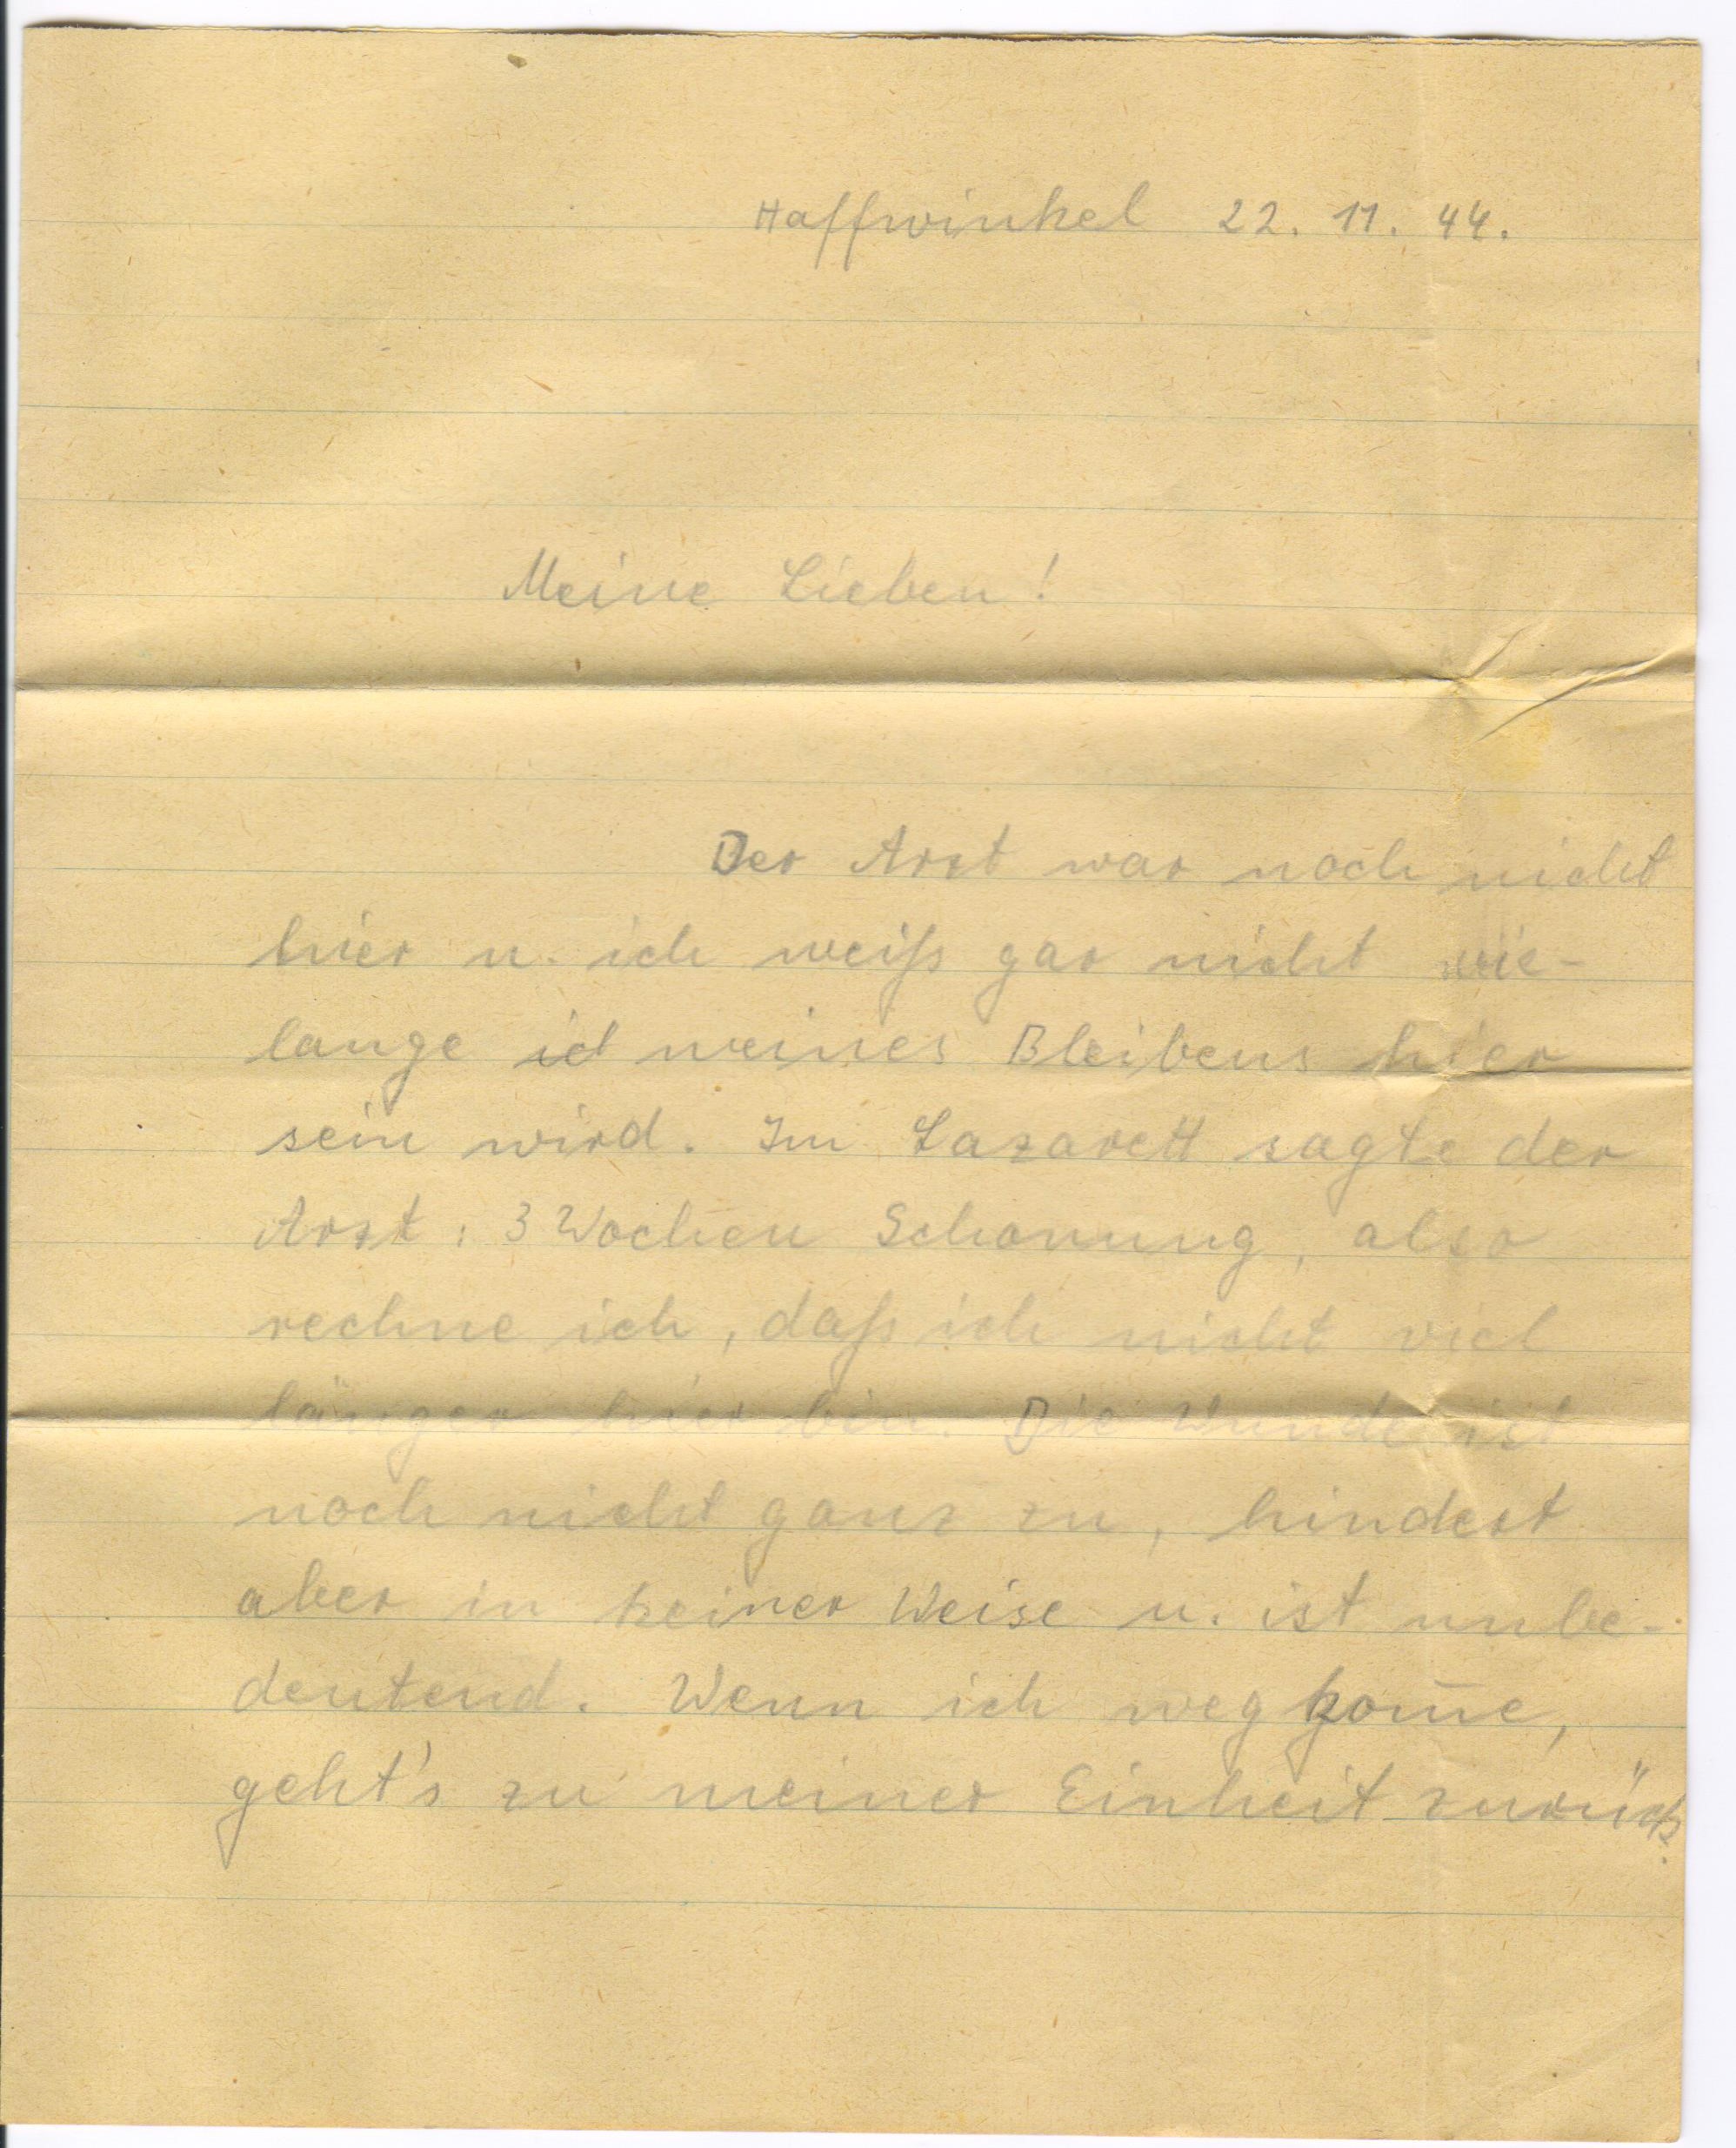 Haffwinkel 22. 11. 44.
Meine Lieben!
Der Arzt war noch nicht
hier u. ich weiß gar nicht wie-
lange id meines Bleibens hier
sein wird. Im Lazarett sagte der
Arzt: 3 Wochen Schonung, also
rechne ich, daß ich nicht viel
länger hier bin. Die Wunde ist
noch nicht ganz zu, hindert
aber in keiner Weise u. ist unbe-
deutend. Wenn ich weg kom̅e,
geht's zu meiner Einheit zurück.